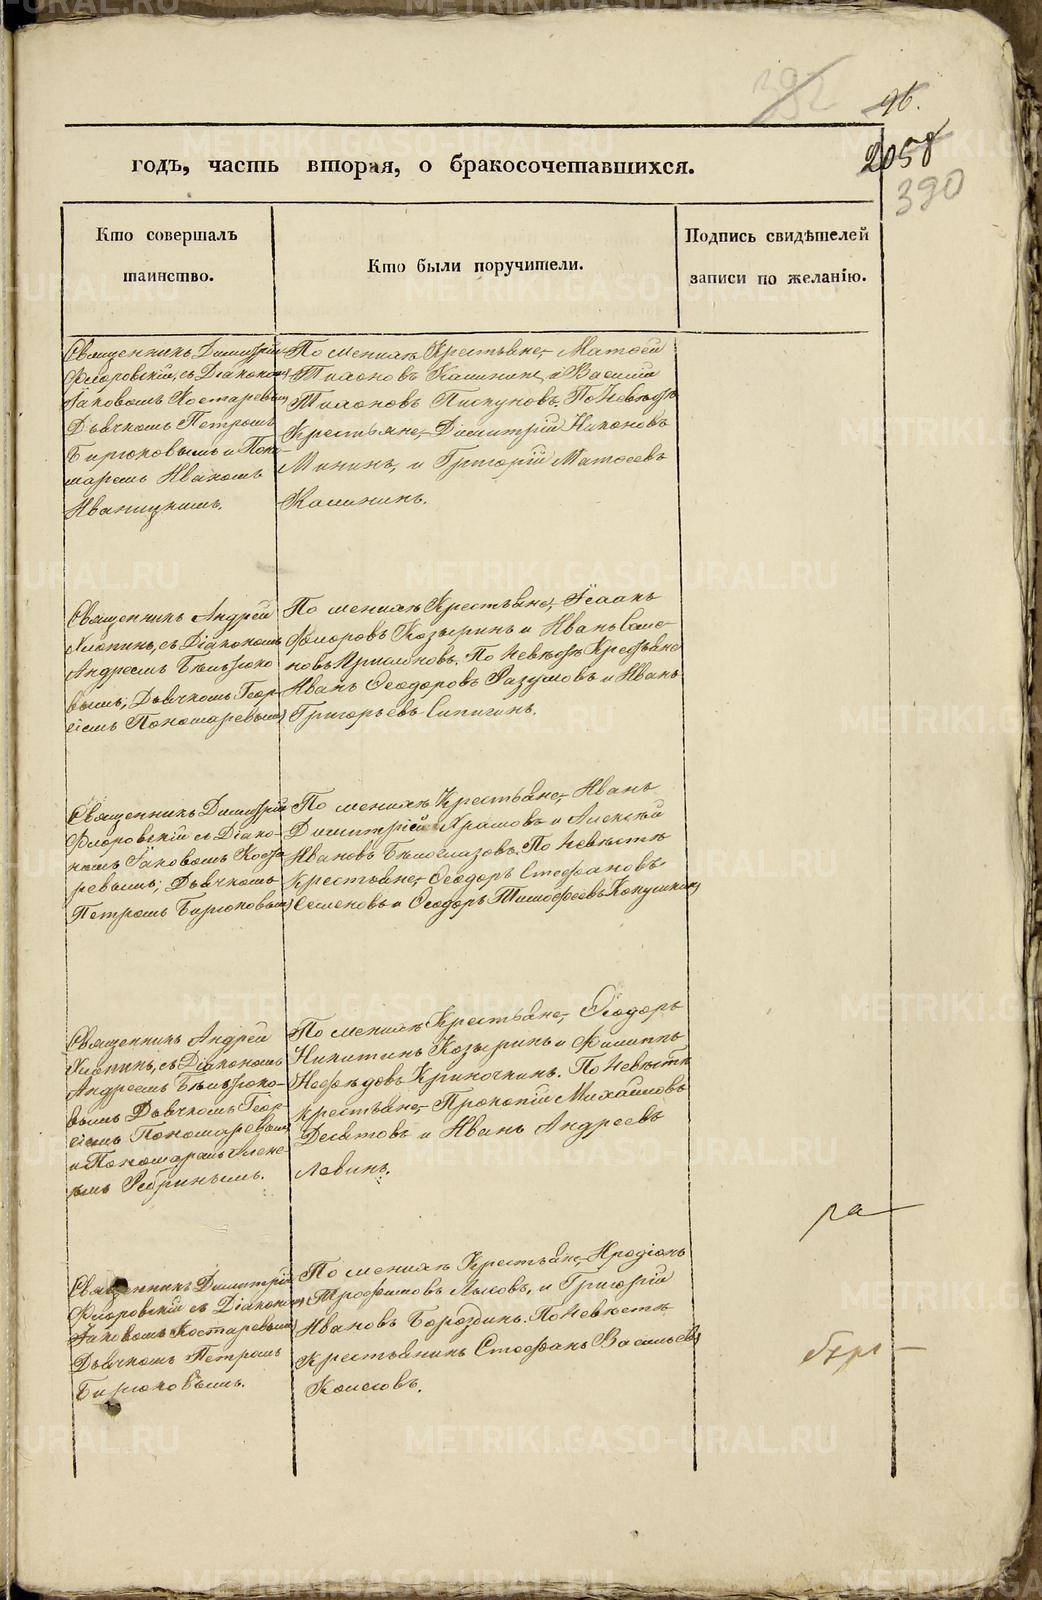 392
96.
годъ, часть вторая, о бракосочетавшихся.
2058
390
Кто совершалъ
таинство.
Кто были поручители.
Подпись свидѣтелей
записи по желанію.
Священникъ Димитрій
Флоровскій, съ Діакономъ
Іаковомъ Костаревымъ
Дьячкомъ Петромъ
Бирюковымъ и Поно-
маремъ Иваномъ
По женихѣ Крестьяне, Матѳей
Тихоновъ Калининъ, и Василій
Тихоновъ Пискуновъ. По Невѣстѣ
Крестьяне, Димитрій Никоновъ
Мининъ, и Григорій Матѳеевъ
Калининъ.
Священникъ Андрей
Хлопинъ, съ Діакономъ
Андреемъ
вымъ, Дьячкомъ Геор-
гіемъ Пономаревымъ
По женихѣ Крестьяне, Исаакъ
Флоровъ Козыринъ и Иванъ Семе-
новъ По Невѣстѣ Крестьяне
Иванъ Ѳеодоровъ Разумовъ и Иванъ
Григорьевъ Сипигинъ.
Священникъ Димитрій
Флоровскій съ Діако-
номъ Іаковомъ Коста-
ревымъ; Дьячкомъ
Петромъ Бирюковымъ
По женихѣ Крестьяне, Иванъ
Димитріевъ Храмовъ и Алексѣй
Ивановъ Бѣлоглазовъ. По Невѣстѣ
Крестьяне, Ѳеодоръ Стефановъ
Семеновъ и Ѳеодоръ Тимофеевъ
Священникъ Андрей
Хлопинъ, съ Діакономъ
Андреемъ
вымъ Дьячкомъ Геор-
гіемъ Пономаревымъ
и Пономаремъ Алексѣ-
емъ
По женихѣ Крестьяне, Ѳеодоръ
Никитинъ Козыринъ и Филиппъ
Нефедовъ Криночкинъ. По Невѣстѣ
крестьяне, Прокопій Михайловъ
Десятовъ и Иванъ Андреевъ
Левинъ.
Священникъ Димитрій
Флоровскій съ Діакономъ
Іаковомъ Костаревымъ
Дьячкомъ Петромъ
Бирюковымъ.
По женихѣ Крестьяне, Иродіонъ
Трофимовъ Лысовъ, и Григорій
Ивановъ Бороздинъ. По Невѣстѣ
Крестьянинъ Стефанъ Васильевъ
METRIKI.GASO-URAL.RU